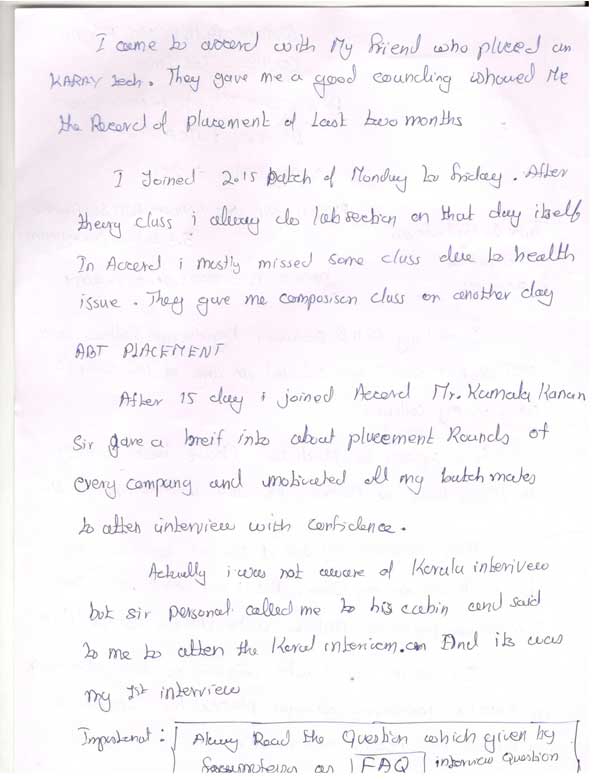 I came to accord with My friend who placed an
KARAY tech. They gave me a good councling showed Me
the Record of placement of Last two months
I Joined 2.015 batch of Monday to friday. After
theory class i alway do lab section on that day itself
In Accord i mostly missed some class due to health
issue. They gave me composison class on another day
ABT PLACEMENT
After 15 day i joined Accord Mr. Kamala Kanan
Sir gave a breif into about placement Rounds of
every company and motivated all my batch mates
to atten interview with confidence.
Actually i was not aware of Kerala interivew
but sir personal called me to his cabin and said
to me to atten the Keral interivew. And its was
my 1st interview
Important: Alway Read the Question which given by
as FAQ interview Question